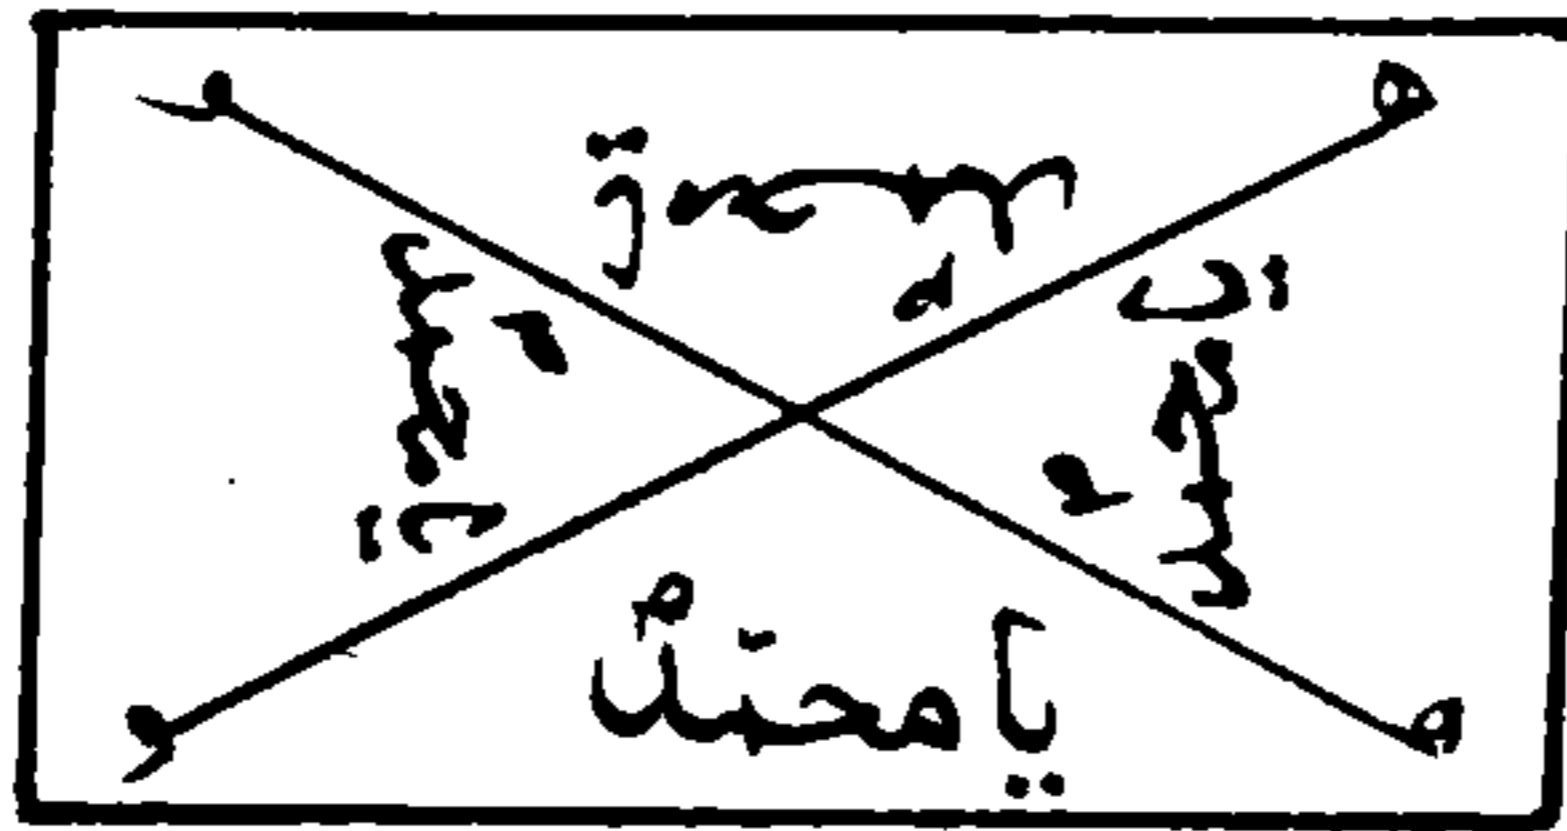 هو
هو
يا محمد
يا محمد
يا محمد
يا محمد